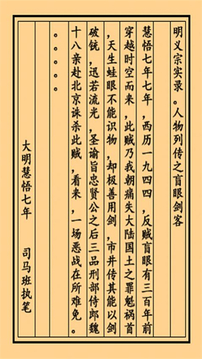 明义宗实录。人物列传之盲眼剑客
慧悟七年七年,西历一九四四,反贼盲眼有三百年前
穿越时空而来,此贼乃我朝痛失大陆国土之罪魁祸首
,天生蛙眼不能识物,却极善用剑,市井传其能以剑
破铳,迅若流光,圣谕旨忠贤公之后三品刑部侍郎魏
十八亲赴北京诛杀此贼,看来,一场恶战在所难免。
。。。。。
大明慧悟七年 司马班执笔